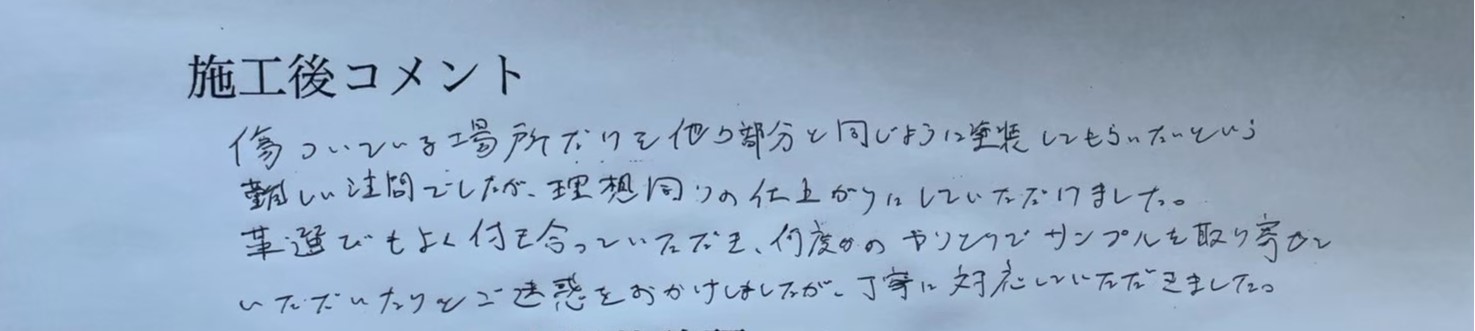 施工後コメント
傷ついている場所だけを他の部分と同じように塗装してもらいたいという
難しい注問でしたが、理想同りの仕上がりにしていただけました。
革選びもよく付き合っていただき、何度かのやりとりでサンプルを取り寄せて
いただいたりとご迷惑をおかけしましたが、丁寧に対応していただきました。